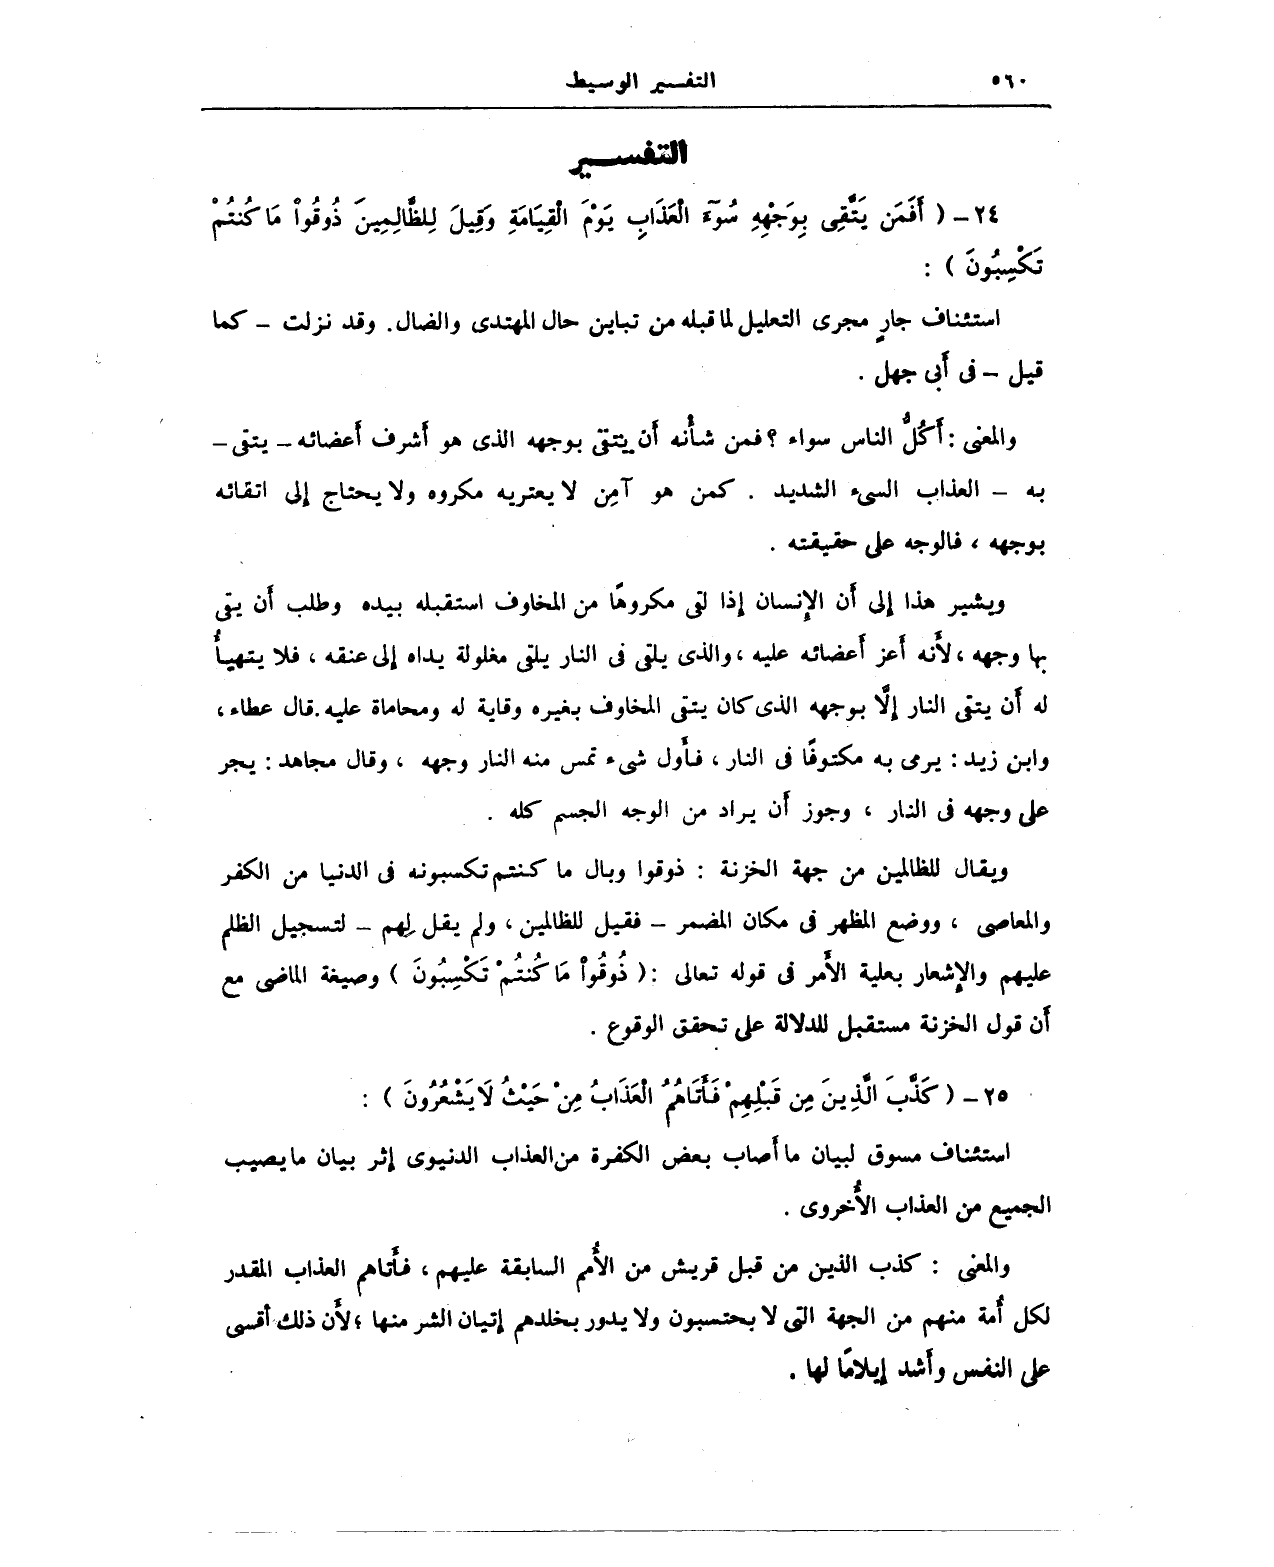 ٥٦٠ التفسير الوسيط
التفسير
٢٤ – ( أَفَمَن يَتَّقِى بِوَجْهِهِ سُوٓءَ الْعَذَابِ يَوْمَ الْقِيَامَةِ وَقِيلَ لِلظَّالِمِينَ ذُوقُواْ مَا كُنتُمْ
تَكْسِبُونَ ) :
استئناف جارٍ مجرى التعليل لما قبله من تباين حال المهتدى والضال. وقد نزلت – كما
قيل – فى أَبى جهل .
والمعنى : أَكُلُّ الناس سواء ؟ فمن شأْنه أَن يتقى بوجهه الذى هو أَشرف أَعضائه – يتقى –
به – العذاب السىء الشديد . كمن هو آمِن لا يعتريه مكروه ولا يحتاج إلى اتقائه
بوجهه ، فالوجه على حقيقته .
ويشير هذا إلى أَن الإِنسان إذا لقى مكروهًا من المخاوف استقبله بيده وطلب أَن يقى
بها وجهه ، لأَنه أَعز أَعضائه عليه ، والذى يلقى فى النار يلقى مغلولة يداه إلى عنقه ، فلا يتهيأُ
له أَن يتقى النار إلَّا بوجهه الذى كان يتقى المخاوف بغيره وقاية له ومحاماة عليه . قال عطاء ،
وابن زيد : يرمى به مكتوفًا فى النار ، فأَول شىء تمس منه النار وجهه ، وقال مجاهد : يجر
على وجهه فى النار ، وجوز أَن يراد من الوجه الجسم كله .
ويقال للظالمين من جهة الخزنة : ذوقوا وبال ما كنتم تكسبونه فى الدنيا من الكفر
والمعاصى ، ووضع المظهر فى مكان المضمر – فقيل للظالمين ، ولم يقل لِهم – لتسجيل الظلم
عليهم والإِشعار بعلية الأَمر فى قوله تعالى : ( ذُوقُواْ مَا كُنتُمْ تَكْسِبُونَ ) وصيغة الماضى مع
أَن قول الخزنة مستقبل للدلالة على تحقق الوقوع .
٢٥ – ( كَذَّبَ الَّذِينَ مِن قَبْلِهِمْ فَأَتَاهُمُ الْعَذَابُ مِنْ حَيْثُ لَا يَشْعُرُونَ ) :
استئناف مسوق لبيان ما أَصاب بعض الكفرة من العذاب الدنيوى إثر بيان ما يصيب
الجميع من العذاب الأُخروى .
والمعنى : كذب الذين من قبل قريش من الأُمم السابقة عليهم ، فأَتاهم العذاب المقدر
لكل أُمة منهم من الجهة التى لا يحتسبون ولا يدور بخلدهم إتيان الشر منها ؛ لأَن ذلك أَقسى
على النفس وأَشد إيلامًا لها .